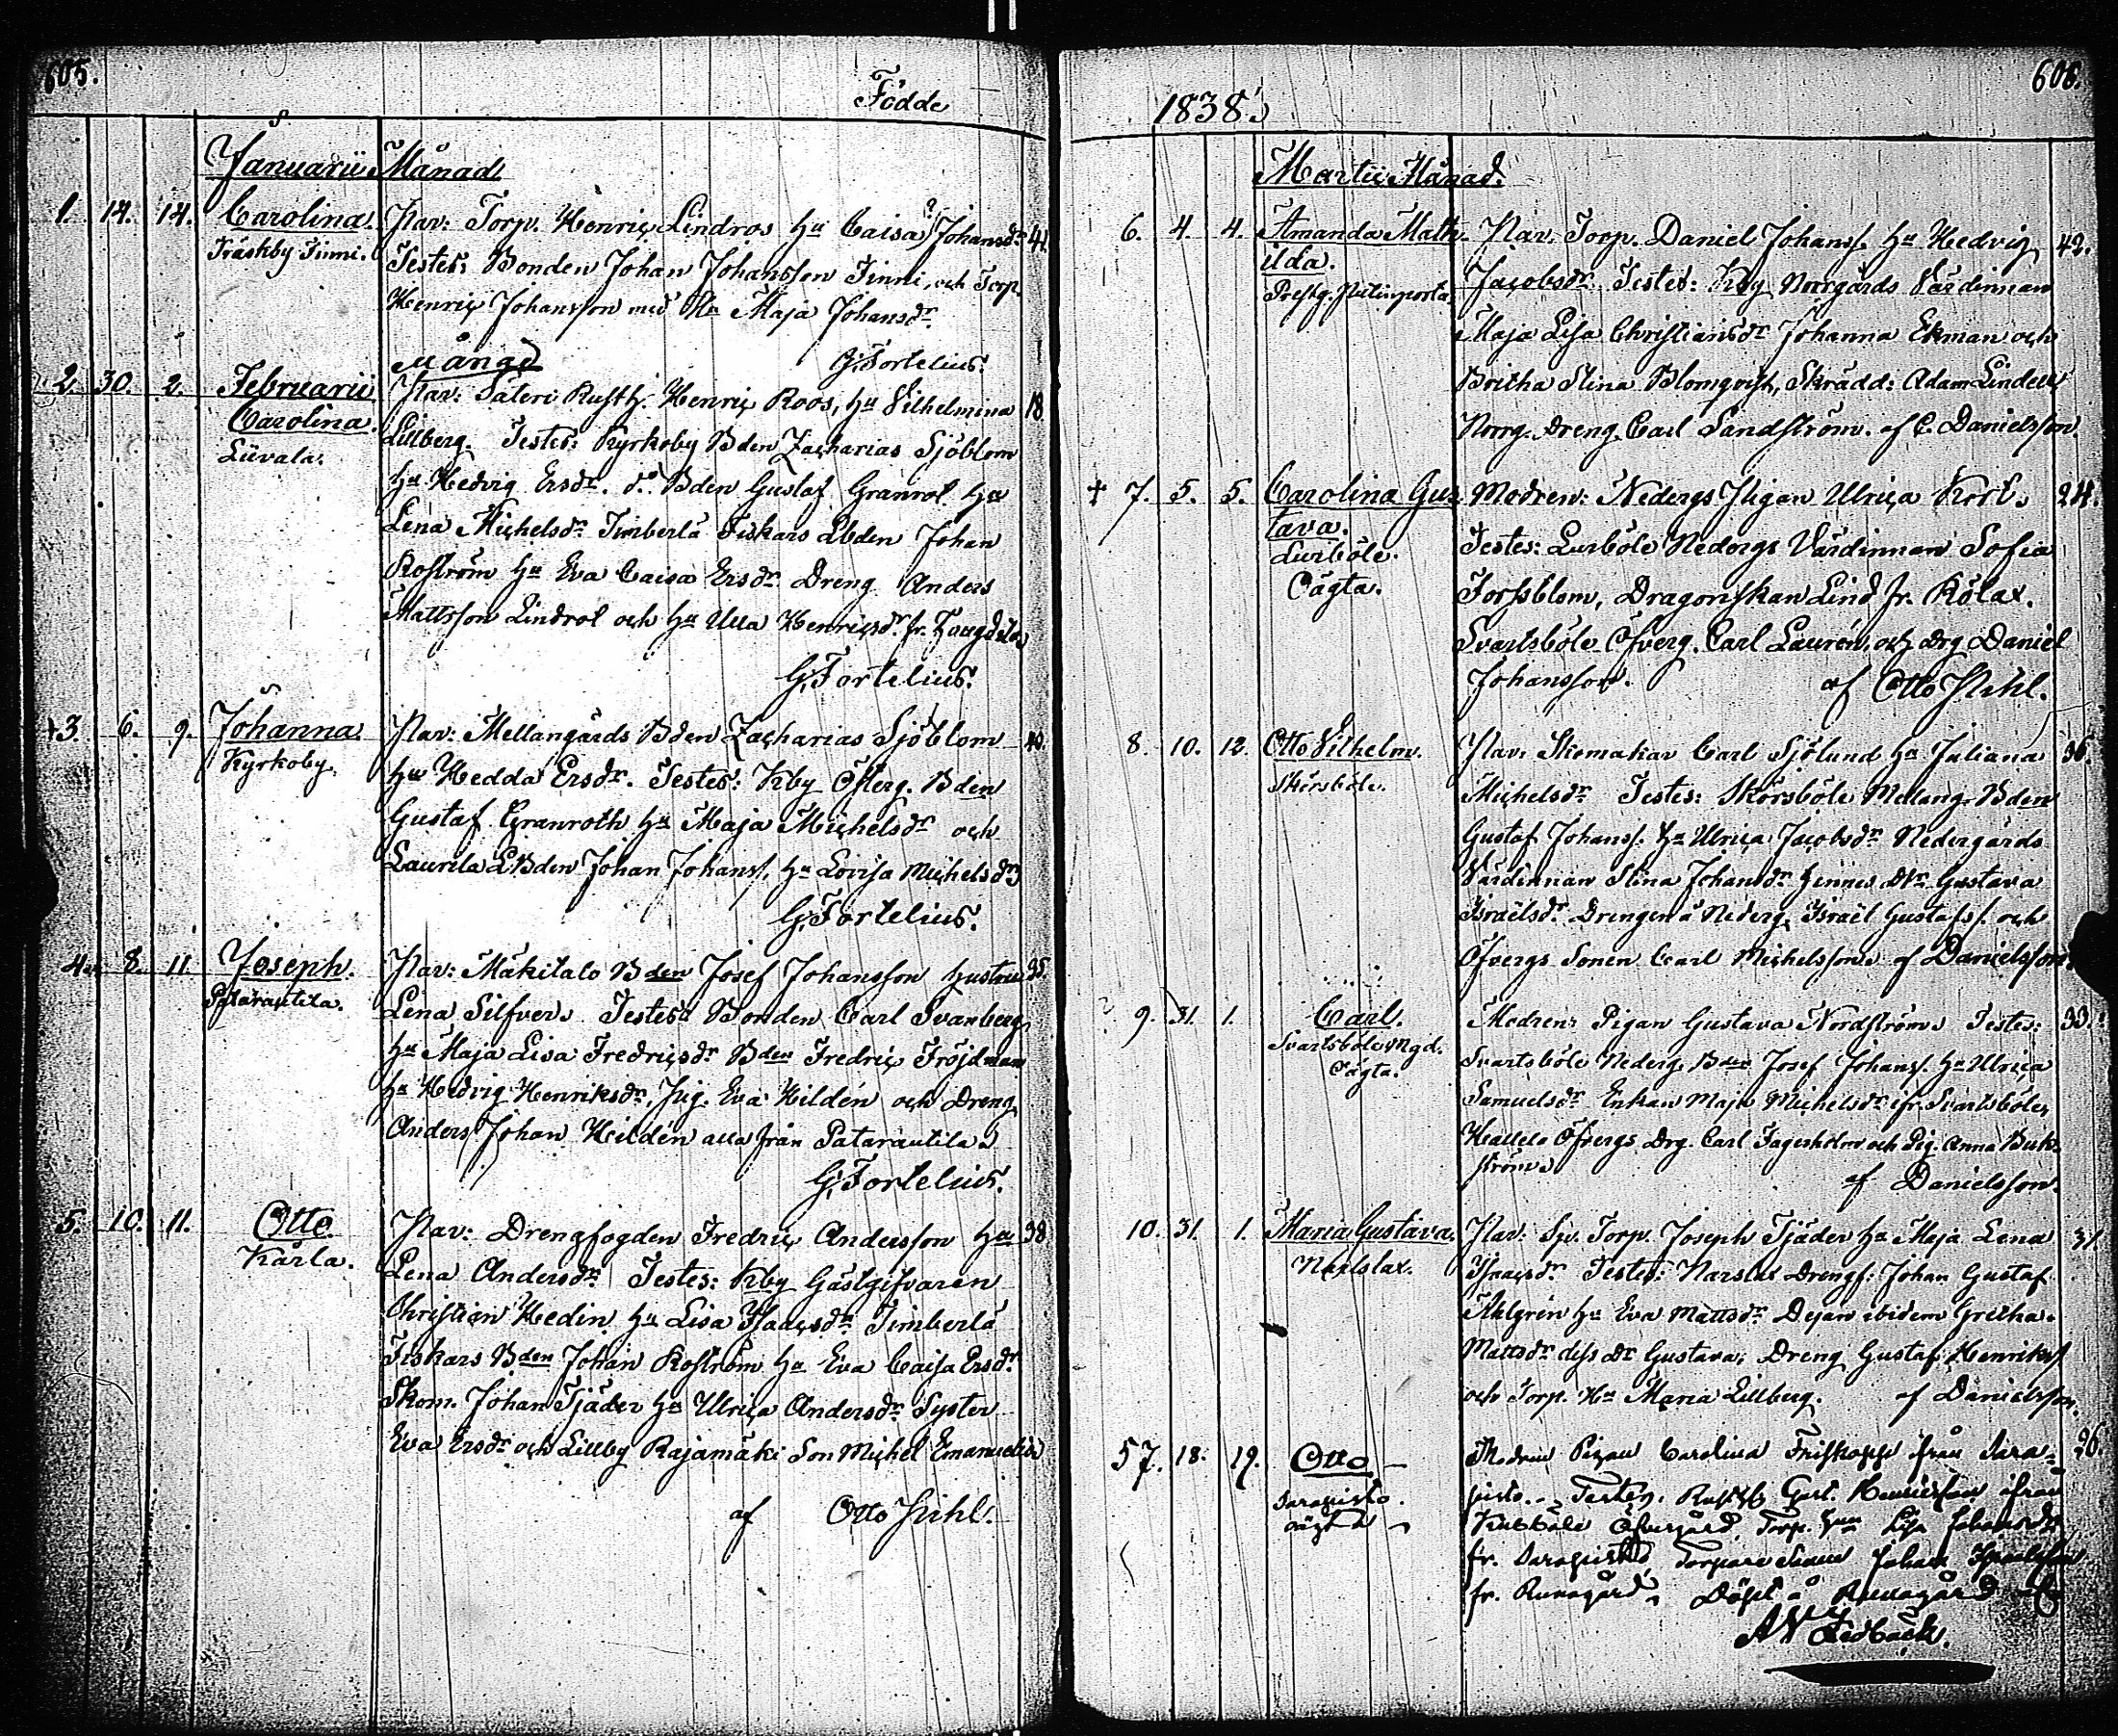 605.
Födde
Januarii Månad
1. 14. 14. Carolina. Par: Torp. Henric Lindros hu Caisa Johansdr 41
Träskby Finni. Testes: Bonden Johan Johansson Finni, och Torp
Henric Johansson med Hu Maja Johansdr
G. Fortelius.
Februarii Månad
2. 30. 2. Carolina. Par: Säteri Rusth. Henric Roos, hu Vilhelmina 18
Liivala. Lillberg. Testes: Kyrkoby Bden Zacharias Sjöblom
hu Hedvig Ersdr. do Bden Gustaf Granrot hu
Lena Michelsdr Timberla Fiskars Lbden Johan
Koström hu Eva Caisa Ersdr Dreng Anders
Mattsson Lindrot och hu Ulla Henricsdr fr.
G. Fortelius.
+3. 6. 9. Johanna. Par: Mellangårds Bden Zacharias Sjöblom 40.
Kyrkoby. hu Hedda Ersdr. Testes: Kby Österg. Bden
Gustaf Granroth hu Maja Michelsdr och
Laurila LBden Johan Johanss. hu Lovisa Michelsdr
G. Fortelius.
4. 8. 11 Joseph. Par: Mäkitalo Bden Josef Johansson hustru 35.
Patarautila. Lena Silfver. Testes: Bonden Carl Svanberg
hu Maja Lisa Fredricsdr Bden Fredric Fröjdman
hu Hedvig Henriksdr, Pig. Eva Hildén och Dreng
Anders Johan Hildén alla från Patarautila
G. Fortelius.
5. 10. 11. Otto. Par: Drengfogden Fredric Andersson hu 38
Kårla. Lena Andersdr Testes: Kby Gästgifvaren
Christian Hedin hu Lisa Isaacsdr Timberla
Fiskars Bden Johan Koström hu Eva Caisa Ersdr.
Skom. Johan Tjäder hu Ulrica Andersdr Syster
Eva Ersdr och Lillby Rajamäki Son Michel Emanuelis
af Otto Pihl.
606.
1838.
Martii Månad.
6. 4. 4. Amanda Math- Par. Torp. Daniel Johanss. hu Hedvig 42.
ilda. Jacobsdr Testes: Kby Norrgårds Värdinnan
Prestg. Maja Lisa Christiansdr Johanna Ekman och
Britha Stina Blomqvist, Skrädd: Adam Lindell
Norrg. Dreng. Carl Sandström. af C. Danielsson.
+ 7. 5. 5. Carolina Gus- Modren: Nedergs Pigan Ulrica Kort. 24.
tava. Testes: Lurböle Nedergs Värdinnan Sofia
Lurböle. Forssblom, Dragonskan Lind fr. Kölax.
Oägta. Svartsböle Öfverg. Carl Laurén, och drg Daniel
Johansson. af Otto Pihl.
8. 10. 12. Otto Vilhelm. Par. Skomakar Carl Sjölund hu Juliana 36.
Skörsböle. Michelsdr Testes: Skörsböle Mellang. Bden
Gustaf Johanss. hu Ulrica Jacobsdr Nedergårds
Värdinnan Stina Johansdr hennes dtr Gustava
Israelsdr. Drengen å Nederg. Israel Gustafss. och
Öfvergs Sonen Carl Michelsson af Danielsson.
9. 31. 1. Carl. Modren: Pigan Gustava Nordström Testes: 33.
Svartsböle Ngd. Svartsböle Nederg. Bden Josef Johanss. hu Ulrica
Oägta. Samuelsdr Enkan Maja Michelsdr ifr. Svartsböle
Öfvergs Drg. Carl Fagerholm och Pig. Anna Buk-
ström
af Danielsson.
10. 31. 1. Maria Gustava. Par: Torp. Joseph Tjäder hu Maja Lena 31.
Isaacsdr. Testes: Narslax Drengf: Johan Gustaf
Ahlgrén hu Eva Mattsdr Dejan ibidem Gretha
Mattsdr dess dr Gustava; Dreng Gustaf Henrikss
och Torp. Hu Maria Lillberg. af Danielsson.
57. 18. 19. Otto Modren Pigan Carolina från Sara- 26.
Sarapisto pisto. Testes: Rusth. Gust. ifrån
oägta Öfvergård, Torp. hun Lisa Johansdr
fr. Sarapisto, Torpare Sonen Johan
fr. Runagård. Döpt å Runagård af